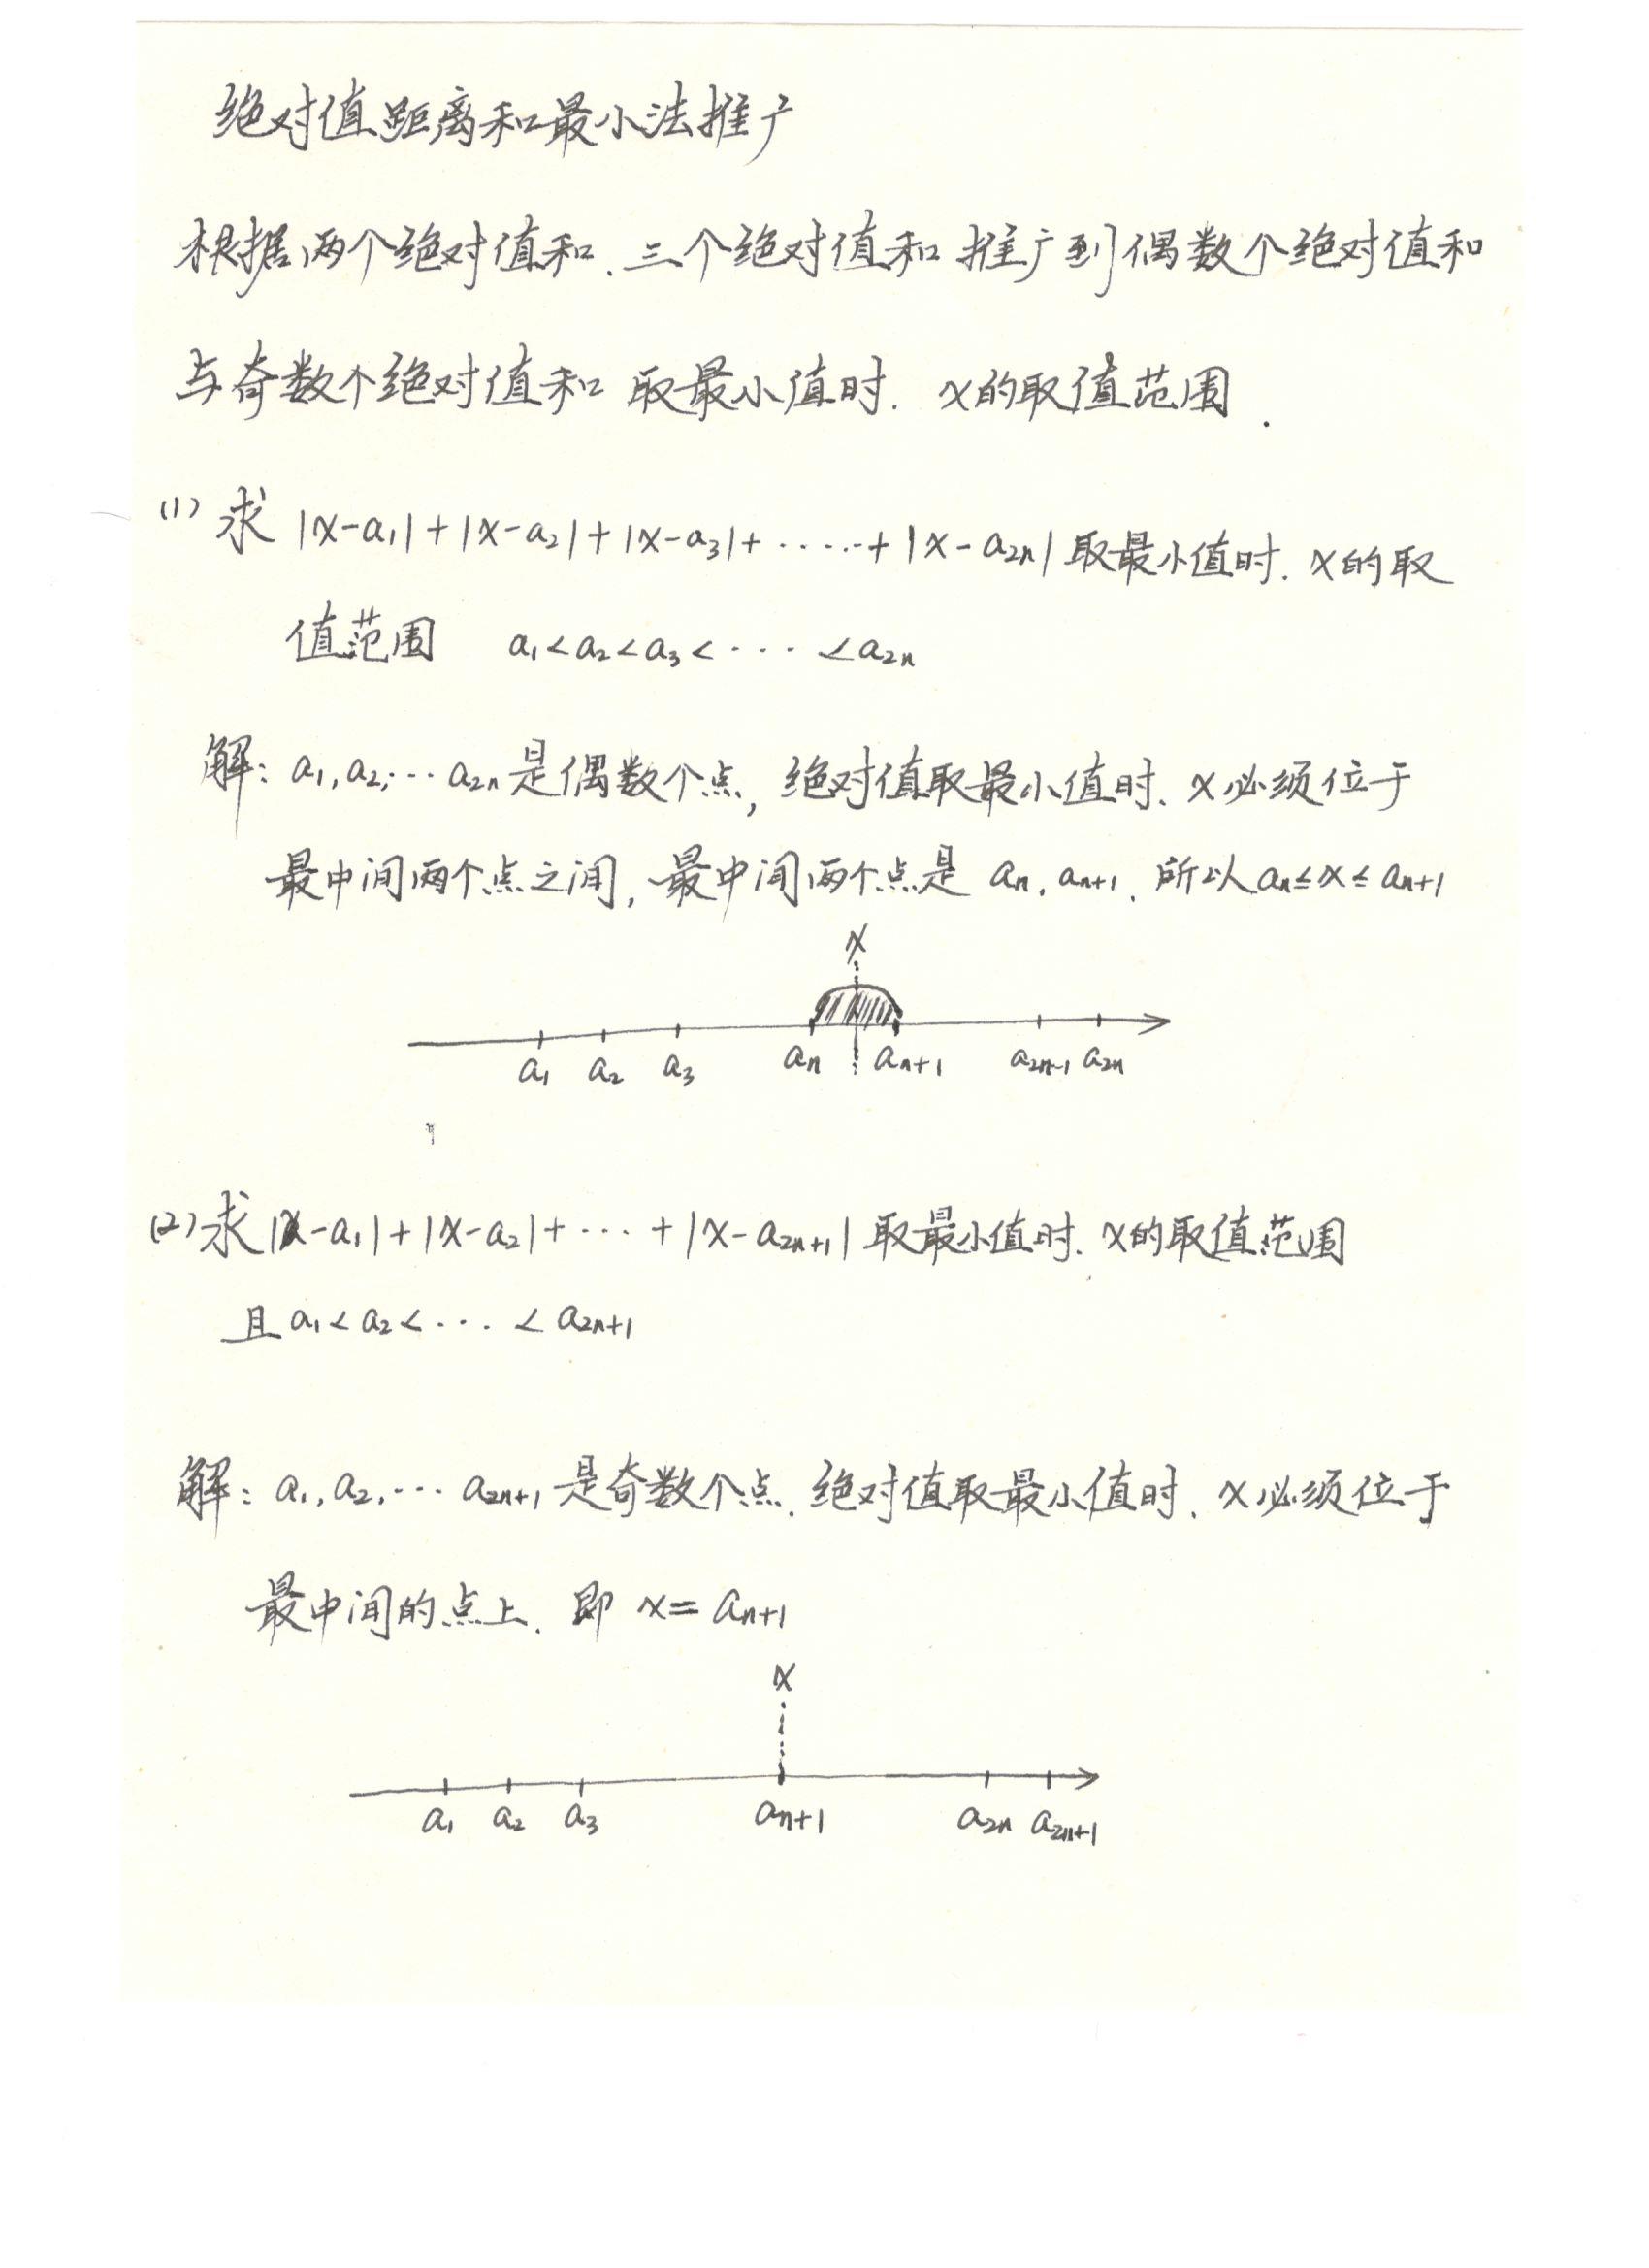 绝对值距离和最小法推广
根据两个绝对值和.三个绝对值和 推广到偶数个绝对值和
与奇数个绝对值和 取最小值时. x的取值范围.
(1) 求 |x-a₁|+|x-a₂|+|x-a₃|+······+|x-a₂ₙ| 取最小值时. x的取
值范围 a₁<a₂<a₃<··· <a₂ₙ
解: a₁,a₂,···a₂ₙ是偶数个点, 绝对值取最小值时、x必须位于
最中间两个点之间, 最中间两个点是 aₙ, aₙ₊₁. 所以aₙ≤x≤aₙ₊₁
x
a₁ a₂ a₃ aₙ aₙ₊₁ a₂ₙ₋₁ a₂ₙ
(2)求|x-a₁|+|x-a₂|+···+|x-a₂ₙ₊₁| 取最小值时. x的取值范围
且a₁<a₂<··· <a₂ₙ₊₁
解: a₁,a₂,··· a₂ₙ₊₁是奇数个点. 绝对值取最小值时. x必须位于
最中间的点上. 即 x=aₙ₊₁
x
a₁ a₂ a₃ aₙ₊₁ a₂ₙ a₂ₙ₊₁